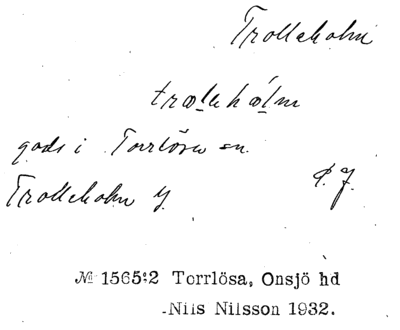 Trolleholm
trolehálm
gods i Torrlösa sn.
Trolleholm
№ 1565:2 Torrlösa, Onsjö hd
Nils Nilsson 1932.